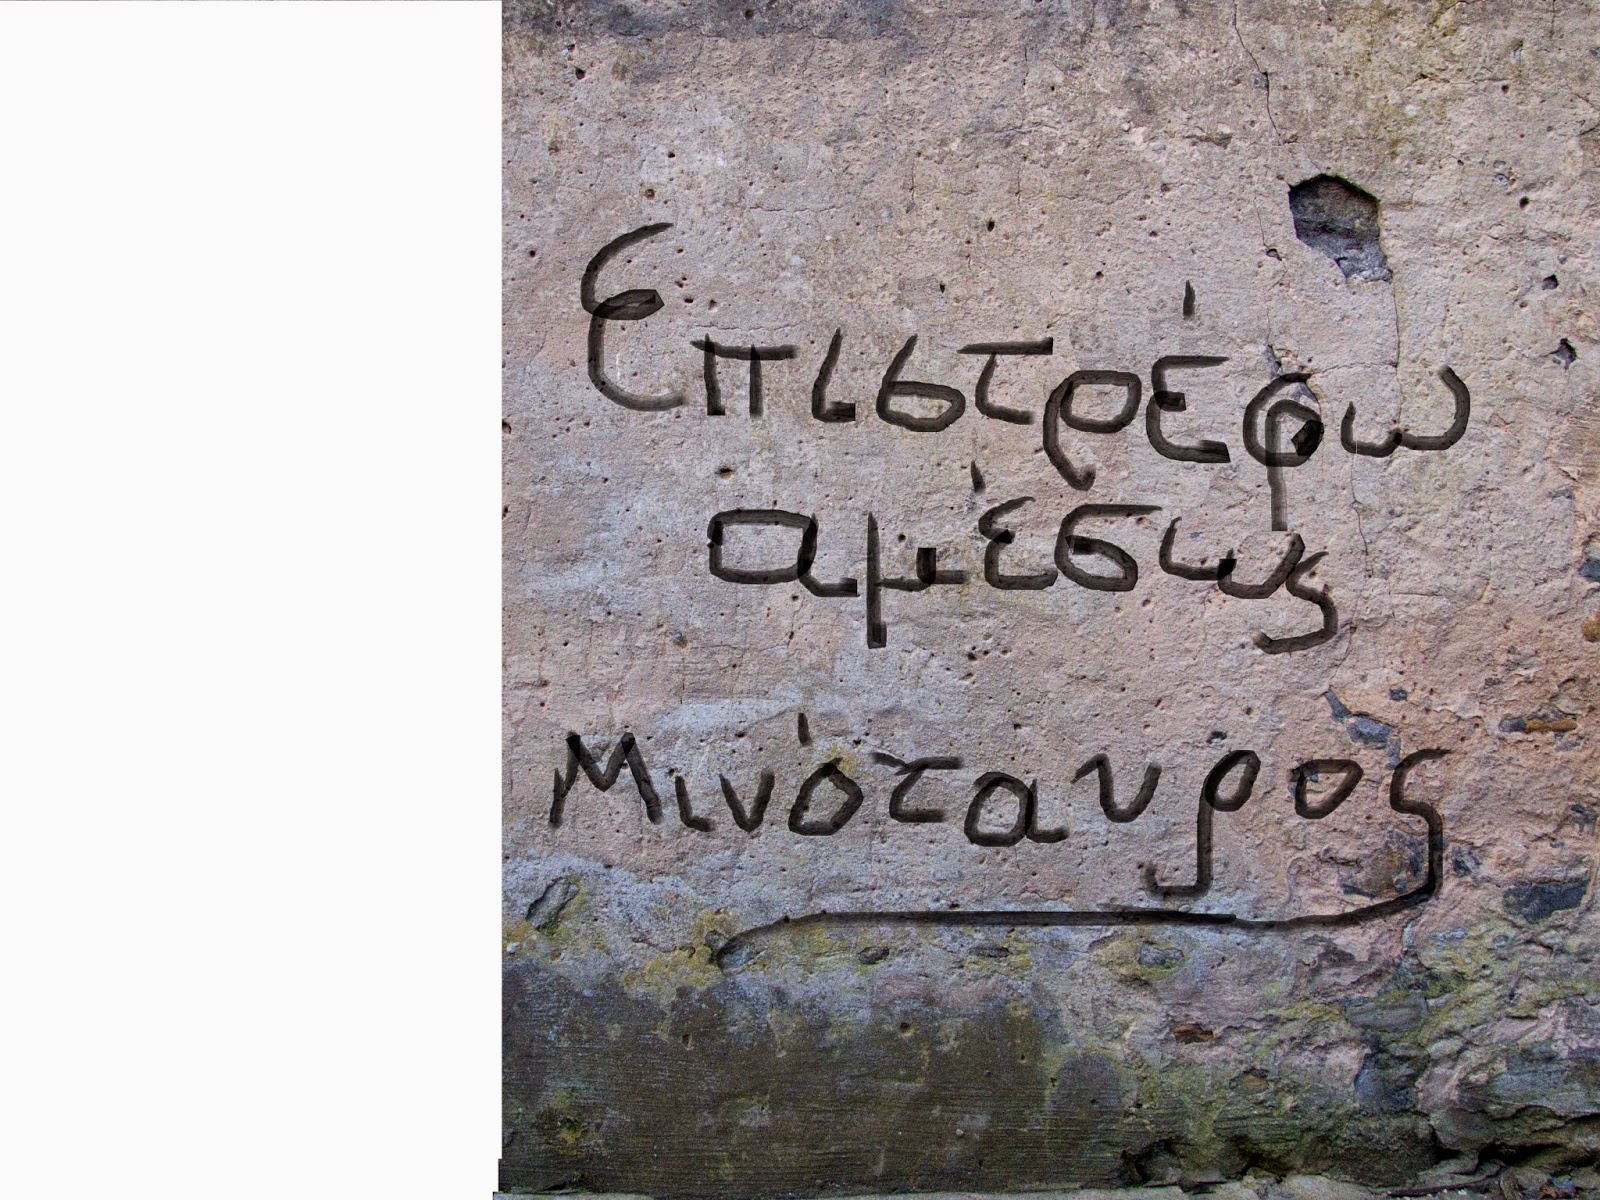 Επιστρέφω
αμέσως
Μινόταυρος